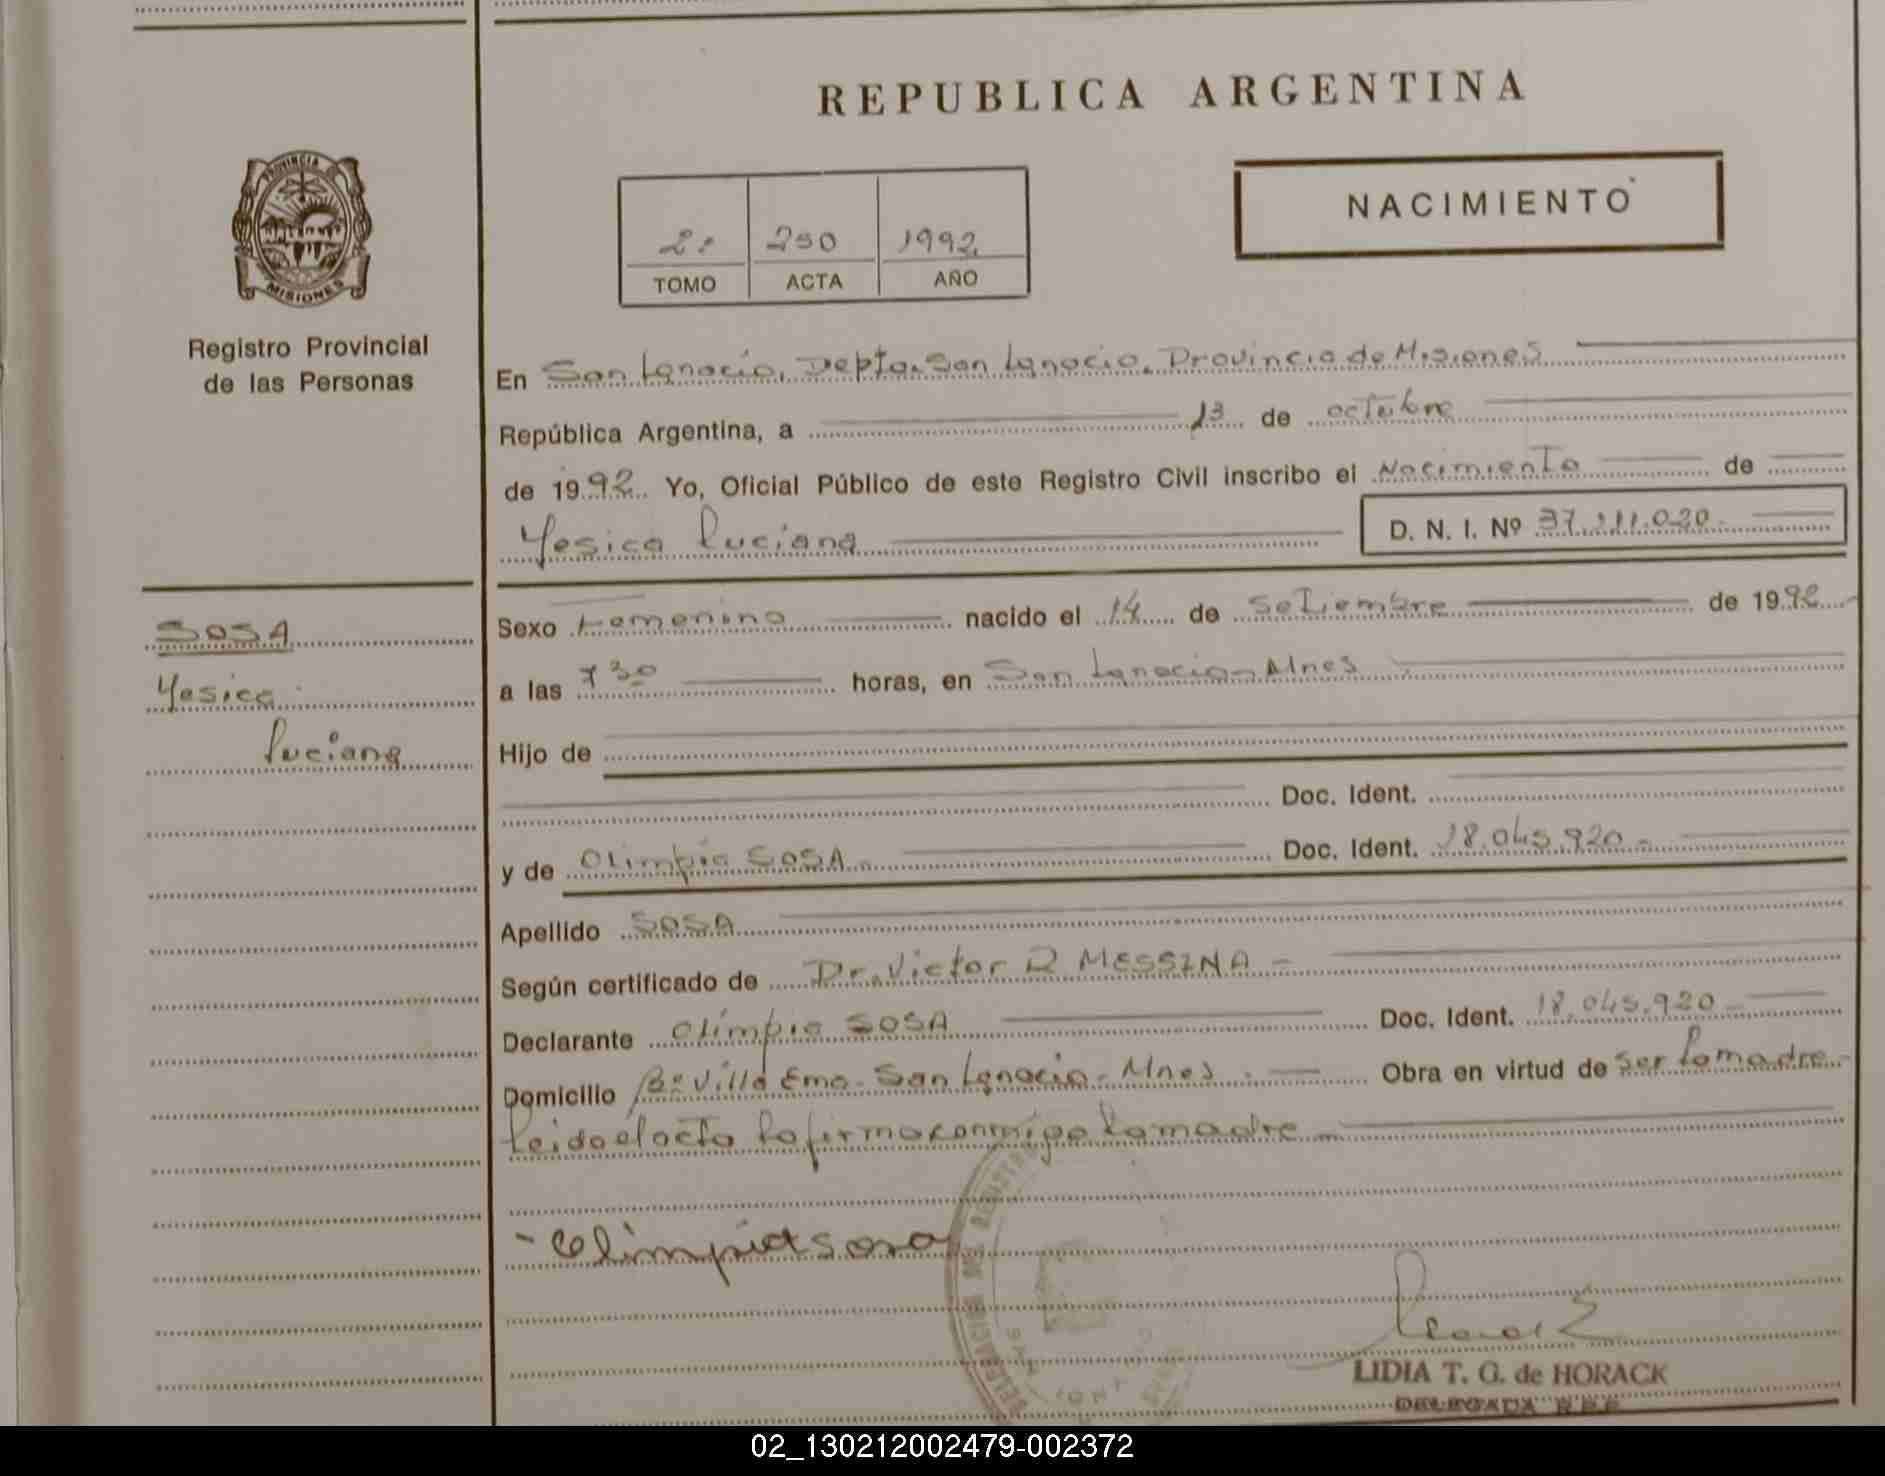 REPUBLICA ARGENTINA
PROVINCIA DE
MISIONES
Registro Provincial
de las Personas
NACIMIENTO
2º 250 1992
TOMO ACTA AÑO
En San Ignacio, Depto. San Ignacio, Provincia de Misiones
República Argentina, a 13 de octubre
de 1992 Yo, Oficial Público de este Registro Civil inscribo el Nacimiento de
Yesica Luciana D. N. I. Nº 37.111.020
SOSA
Yesica
Luciana
Sexo Femenino nacido el 14 de Setiembre de 1992
a las 7 30 horas, en San Ignacio - Mnes
Hijo de
Doc. Ident.
y de Olimpia SOSA - Doc. Ident. 18.045.920 -
Apellido SOSA
Según certificado de Dr. Victor R MESSINA -
Declarante Olimpia SOSA Doc. Ident. 18.045.920 -
Domicilio Bº Villa Ema - San Ignacio - Mnes. - Obra en virtud de ser la madre -
Leida el acta la firma conmigo la madre
- Olimpia Sosa
LIDIA T. G. de HORACK
DELEGADA
02_130212002479-002372